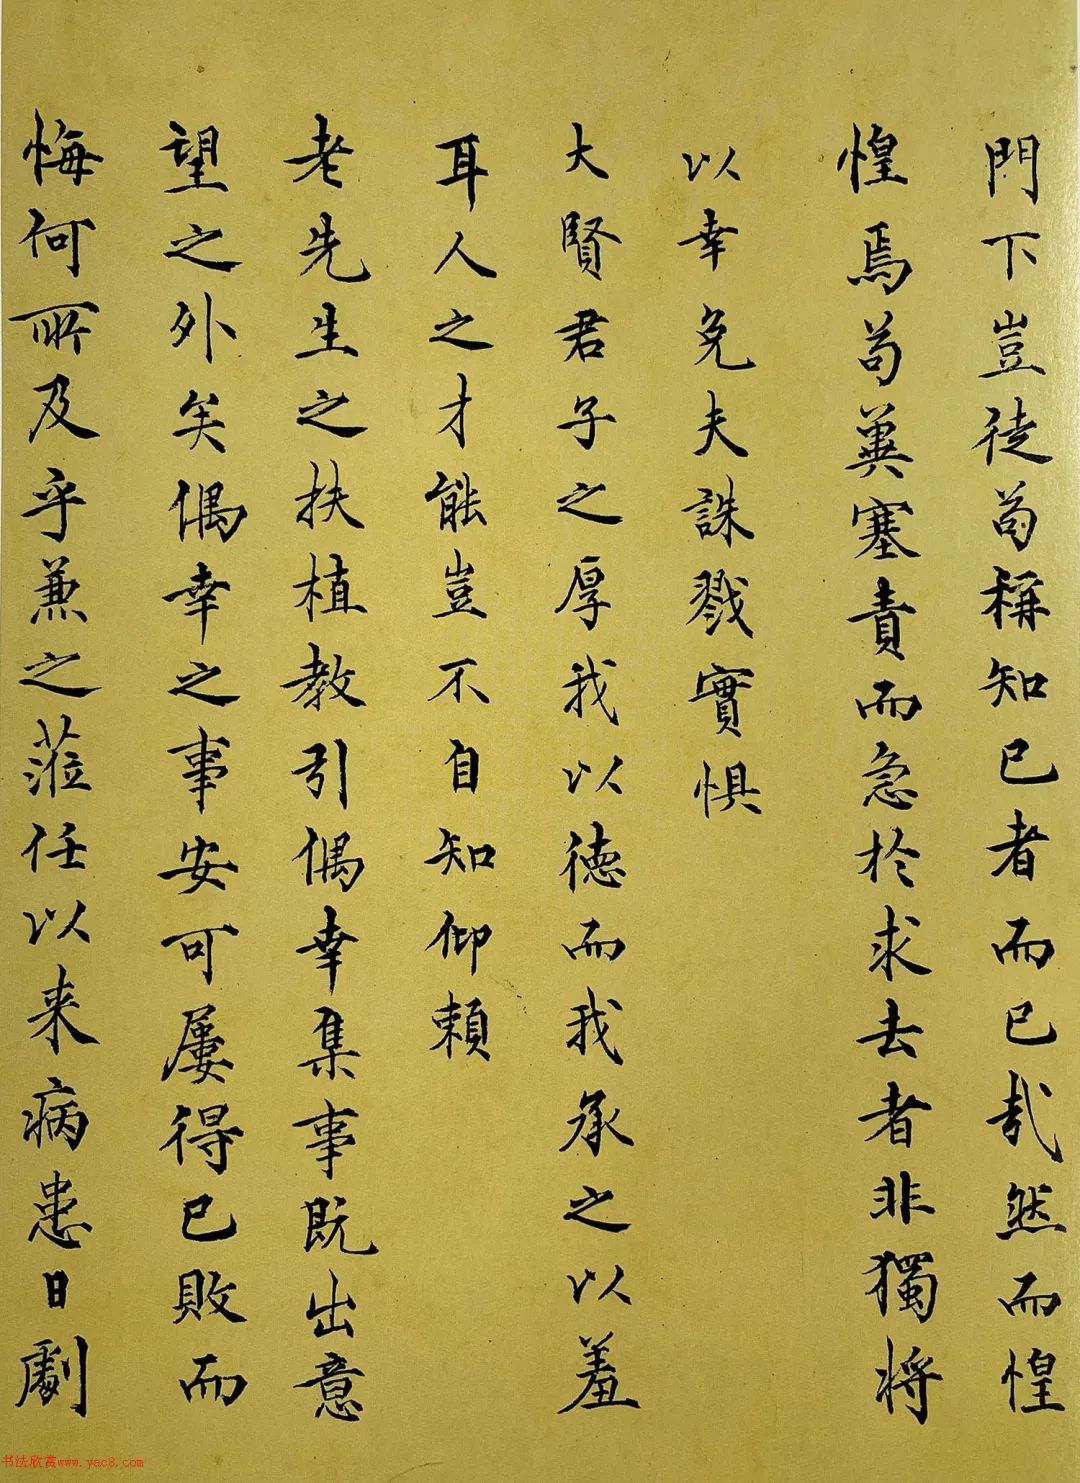 門下豈徒苟稱知已者而已哉然而惶
惶焉苟冀塞責而急於求去者非獨將
以幸免夫誅戮實懼
大賢君子之厚我以德而我承之以羞
耳人之才能豈不自知仰賴
老先生之扶植教引偶幸集事既出意
望之外矣偶幸之事安可屢得已敗而
悔何所及乎兼之蒞任以来病患日劇
书法欣赏www.yac8.com